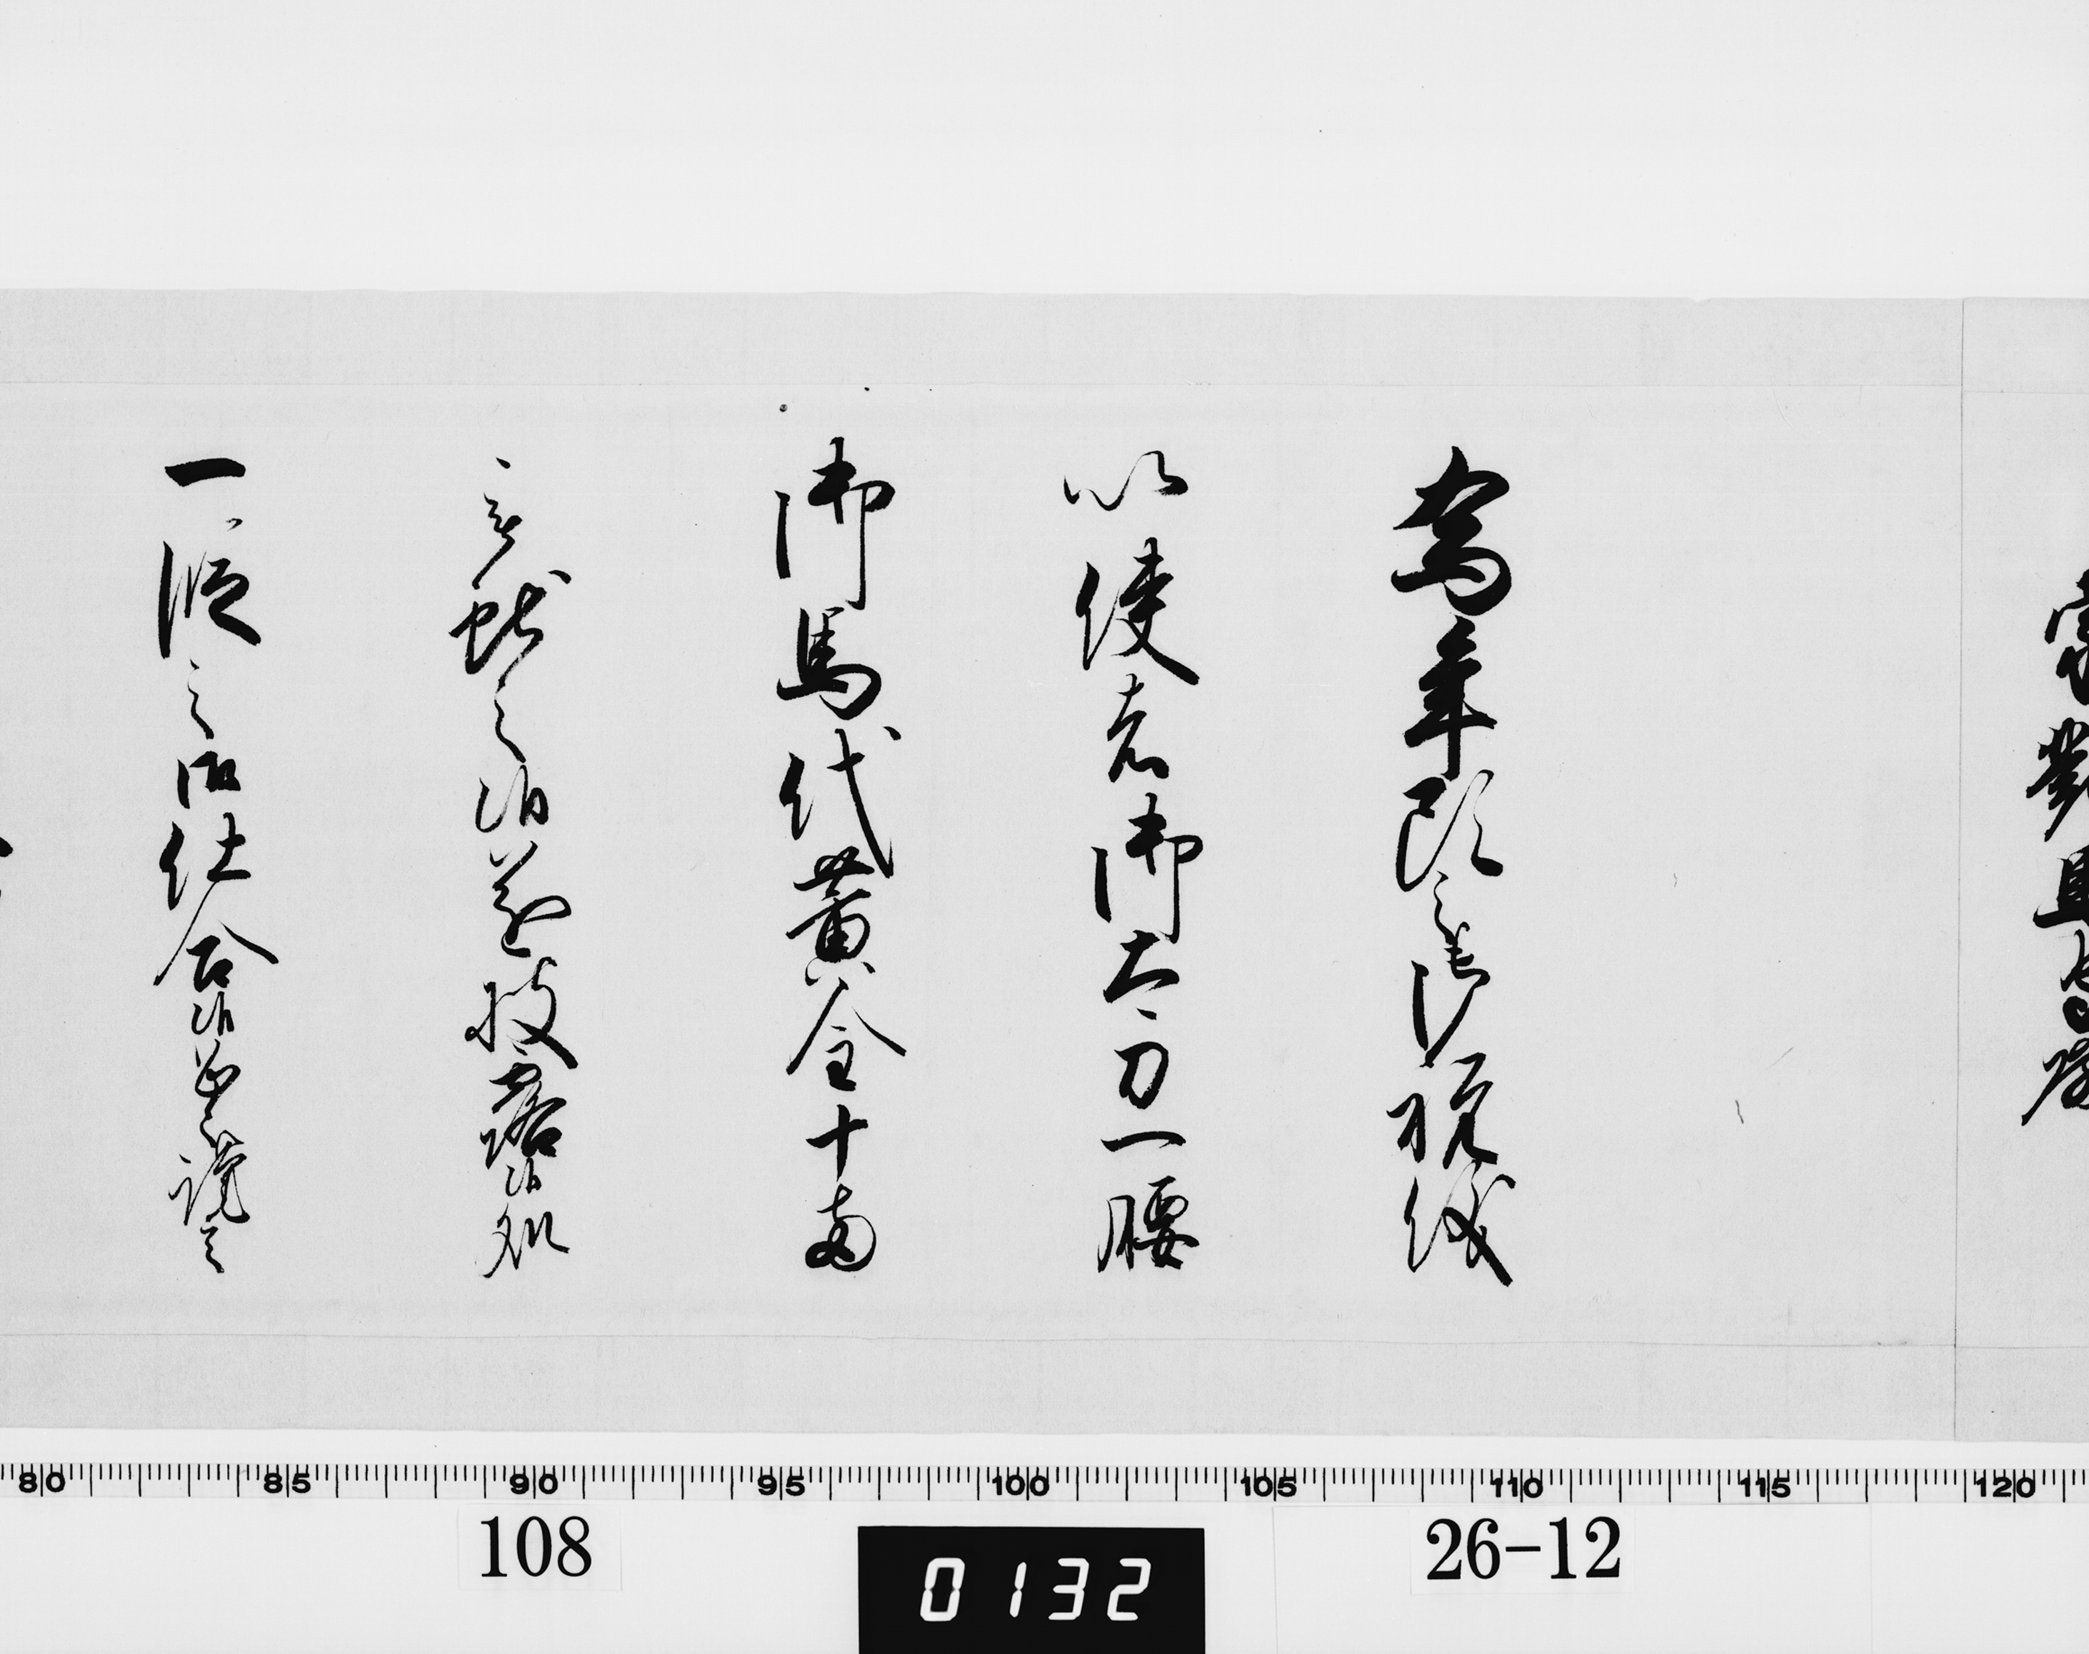 為年頭之御祝儀
以使者御太刀一腰
御馬代黄金十両
被献之候遂披露候処
一段之御仕合候恐々謹言
80 85 90 95 100 105 110 115 120
108
0132
26-12